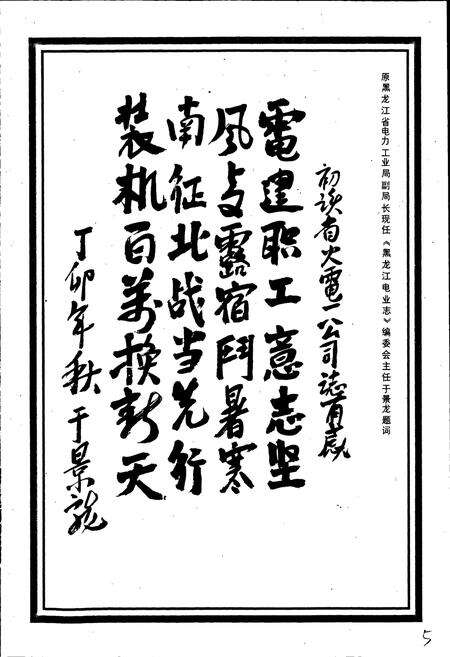 原黑龙江省电力工业局副局长现任《黑龙江电业志》编委会主任于景龙题词
初读省火電一公司誌有感
電建职工意志坚
风歺露宿鬥暑寒
南征北战当先行
装机百萬换新天
丁卯年秋 于景龙
5